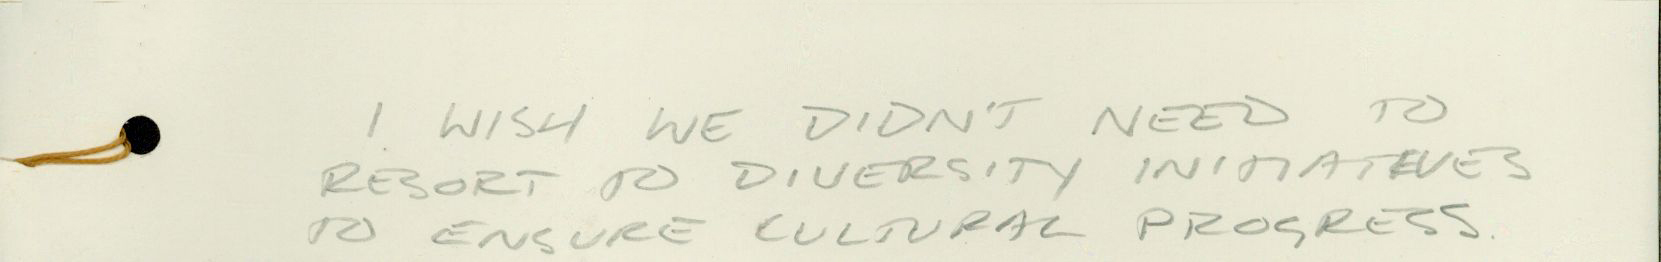 I WISH WE DIDN'T NEED TO
RESORT TO DIVERSITY INITIATIVES
TO ENSURE CULTURAL PROGRESS.